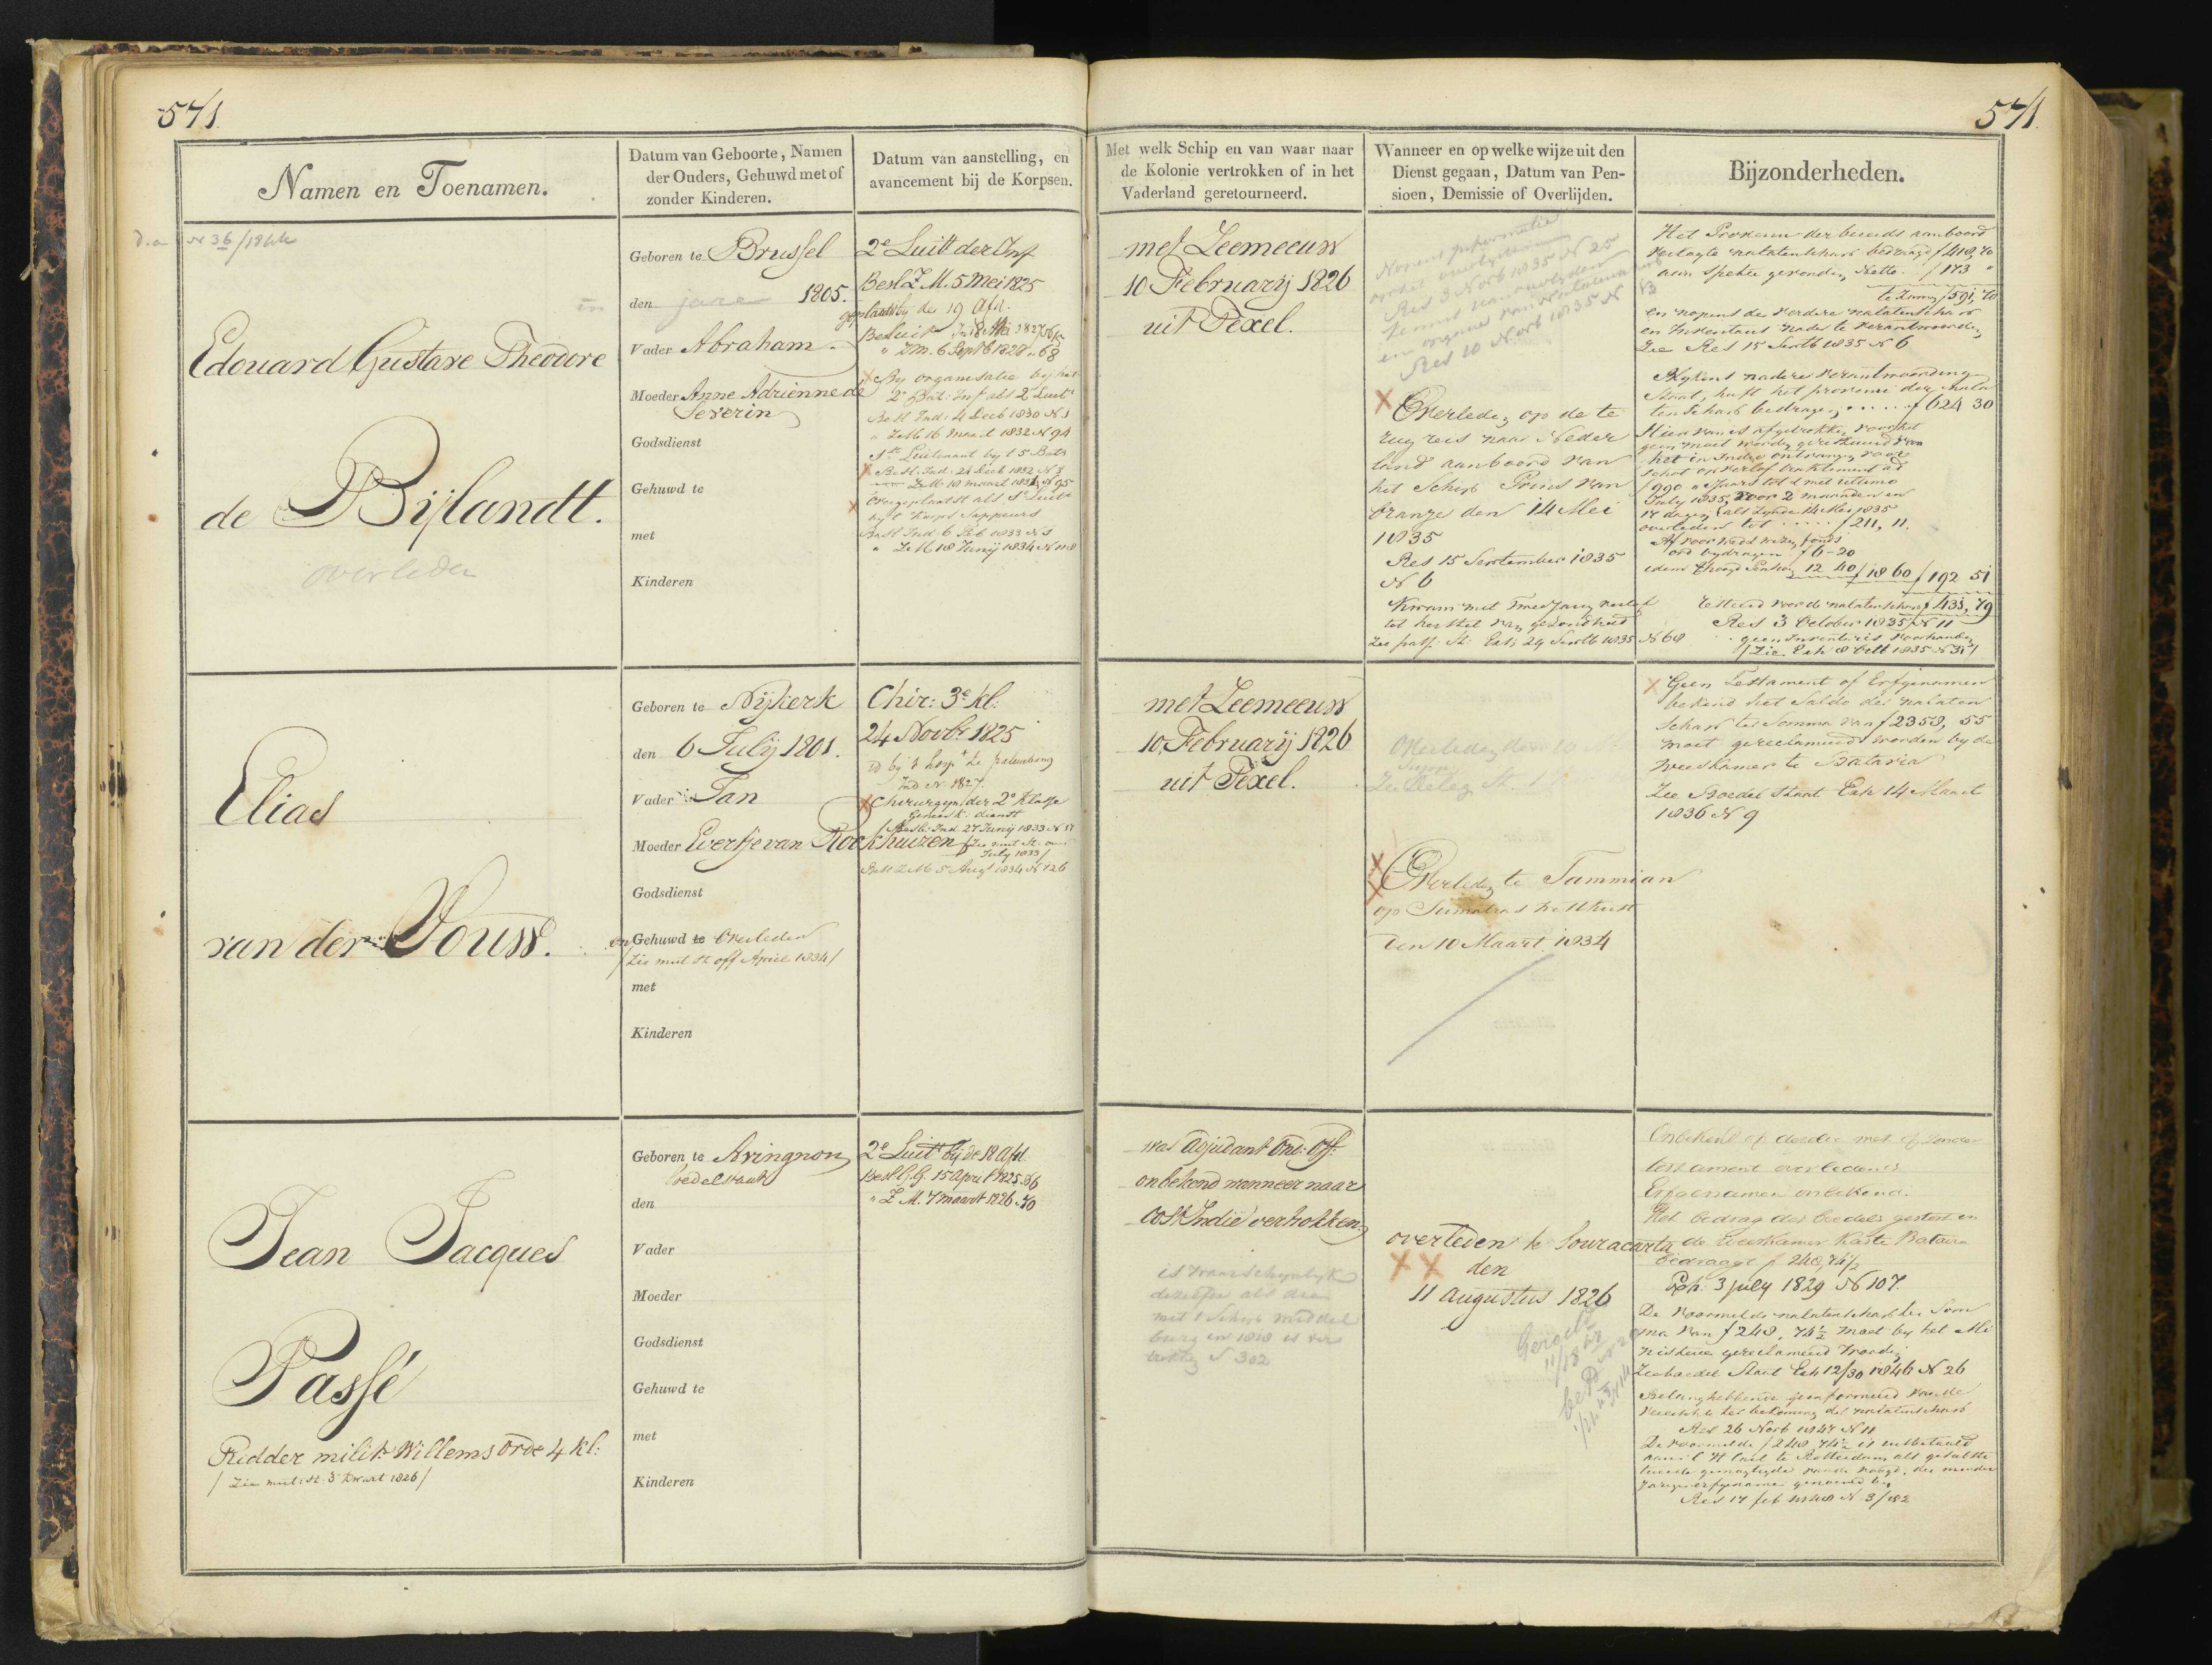 571.
571.
Namen en Toenamen.
Datum van Geboorte, Namen
der Ouders, Gehuwd met of
zonder Kinderen.
Datum van aanstelling, en
avancement bij de Korpsen.
Met welk Schip en van waar naar
de Kolonie vertrokken of in het
Vaderland geretourneerd.
Wanneer en op welke wijze uit den
Dienst gegaan, Datum van Pen-
sioen, Demissie of Overlijden.
Bijzonderheden.
N 36/1844
Edouard Gustave Theodore
de Bijlandt.
overleden
Geboren te Brussel
in
den jare 1805.
Vader Abraham
Moeder Anne Adrienne de
Severin
Godsdienst
Gehuwd te
met
Kinderen
2e Luitt der Inf
Besl Z.M. 5 Mei 1825
geplaatst by de 19 Afd.
Besluit Ind 8 Mei 1827
" Z.M. 6 Sept 1828 " 68
By organisatie bij het
2e Bat: Inf als 2e Luitt
Besl Ind: 4 Decb 1830 N 1
" Z.M 16 Maart 1832 N 94
1ste Luitenant by t 5 Bat
Besl: Ind: 24 Decb 1832 N 3
Z.M 18 Maart 1834 N 95
Overgeplaatst als 1e Luitt
by t Korps Sappeurs
Besl Ind 6 Feb 1833 N 1
" Z.M 18 Junij 1834 N 118
met Zeemeeuw
10 February 1826
uit Texel.
Nopens informatie
omtrent overlyden
Res 3 Novb 1835 N 25
Kennis van overlyden
en opgave van nalatenschap
Res 10 Novb 1835 N 13
Overleden op de te
rug reis naar Neder
land aanboord van
het Schip Prins van
Oranje den 14 Mei
1835
Res 15 September 1835
N 6
Kwam met Tweejarig verlof
tot herstel van gezondheid
Zie pass: St: Exh 24 Septb 1835 N 68
Het Provenu der bereids aanboord
verkogte nalatenschap bedraagt f 418,70
aan specie gevonden Netto f 173 "
te zamen f 591,70
en nopens de verdere nalatenschap
en Inventaris nader te verantwoorden
Zie Res 15 Septb 1835 N 6
Blykens nadere verantwoording
Staat, heeft het provenu der nala
tenschap bedragen f 624 30
Hier van is afgetrokken voor het
geen moet worden gerestitueerd van
het in Indie ontvangen voor
schot op verlof traktement ad
f 990 " 'sJaars tot en met ultimo
July 1835 voor 2 maanden en
17 dagen (als zynde 14 Mei 1835
overleden tot f 211, 11.
idem 12 40 f 18 60 f 192 51
resteerd voor de nalatenschap f 431,79
Res 3 October 1835 N 11
geen Inventaris voorhanden
/Zie Exh 8 Octb 1835 N 31/
Elias
van der Vouw.
Geboren te Nijkerk
den 6 Julij 1801.
Vader Jan
Moeder Evertje van Rockhuizen
Godsdienst
en Gehuwd te Overleden
/Zie mut St off April 1834/
met
Kinderen
Chir: 3e kl:
24 Novbr 1825
id by 't hosp te palembang
Ind N 1827.
Chirurgyn der 2e Klasse
Geneesk: dienst
Besl: Ind 27 Junij 1833 N 17
July 1833/
Besl Z.M 5 Augt 1834 N 126
met Zeemeeuw
10 February 1826
uit Texel.
Overleden den 10
Overleden te Tammian
op Sumatras Westkust
den 10 Maart 1834
Geen Testament of Erfgenamen
bekend het Saldo der nalaten
schap ter Somma van f 2358, 55
moet gereclameerd worden by de
weeskamer te Batavia
Zie Boedel Staat Exh 14 Maart
1836 N 9
Jean Jacques
Passé
Ridder milite Willems Orde 4 kl:
/ Zie mut: St: 3 Kwart 1826 /
Geboren te Avingnon
den
Vader
Moeder
Godsdienst
Gehuwd te
met
Kinderen
2e Luitt bij de 18 Afd.
Besl G.G. 15 April 1825. 36
" Z.M. 7 Maart 1826. 70
was Adjudant Ond: Off:
onbekend wanneer naar
Oost Indië vertrokken.
is waarschynlyk
dezelfde als die
met t Schip Middel
burg in 1818 is ver
trokken N 302
overleden te Souracarta
den
11 Augustus 1826
Onbekend of dezelve met of zonder
testament overleden is
Erfgenamen onbekend.
Het bedrag des boedels gestort in
de weeskamer kas te Batavia
bedraagt f 248,74½
Exh. 3 July 1829 N 107.
De voormelde nalatenschap ter Som
ma van f 248, 74½ moet by het Mi
nisterie gereclameerd worden
Zie boedel Staat Exh 12/30 1846 N 26
Belanghebbende geinformeerd van de
vereischte ter bekoming der nalatenschap
Res 26 Novb 1847 N 11
De voormelde f 248 74½ is uitbetaald
Res 17 feb 1848 N 3/182